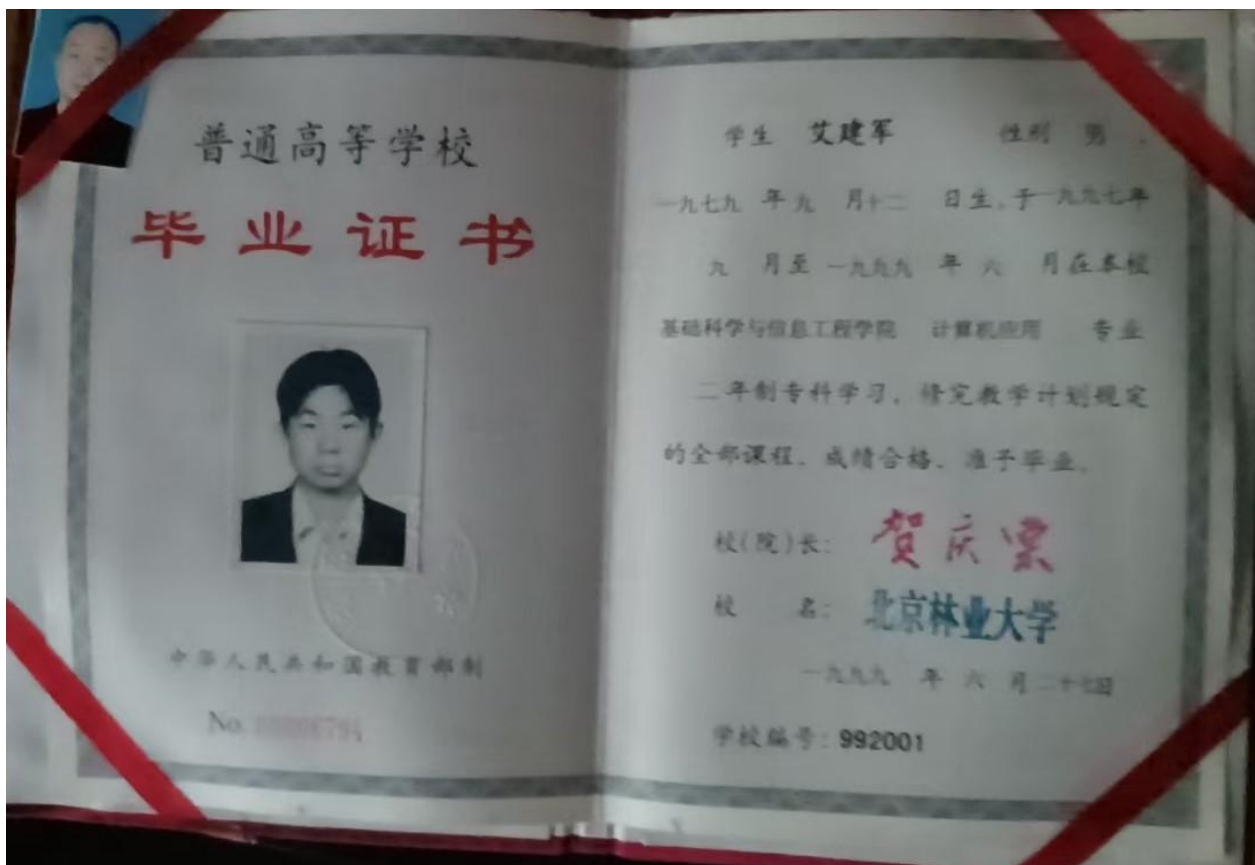 普通高等学校
毕业证书
中华人民共和国教育部制
No.
学生 艾建军 性别 男
一九七九 年 九 月十二 日生,于一九九七年
九 月至 一九九九 年 六 月在本校
基础科学与信息工程学院 计算机应用 专业
二年制专科学习,修完教学计划规定
的全部课程,成绩合格,准予毕业。
校(院)长: 贺庆棠
校 名: 北京林业大学
一九九九 年 六 月二十七日
学校编号:992001